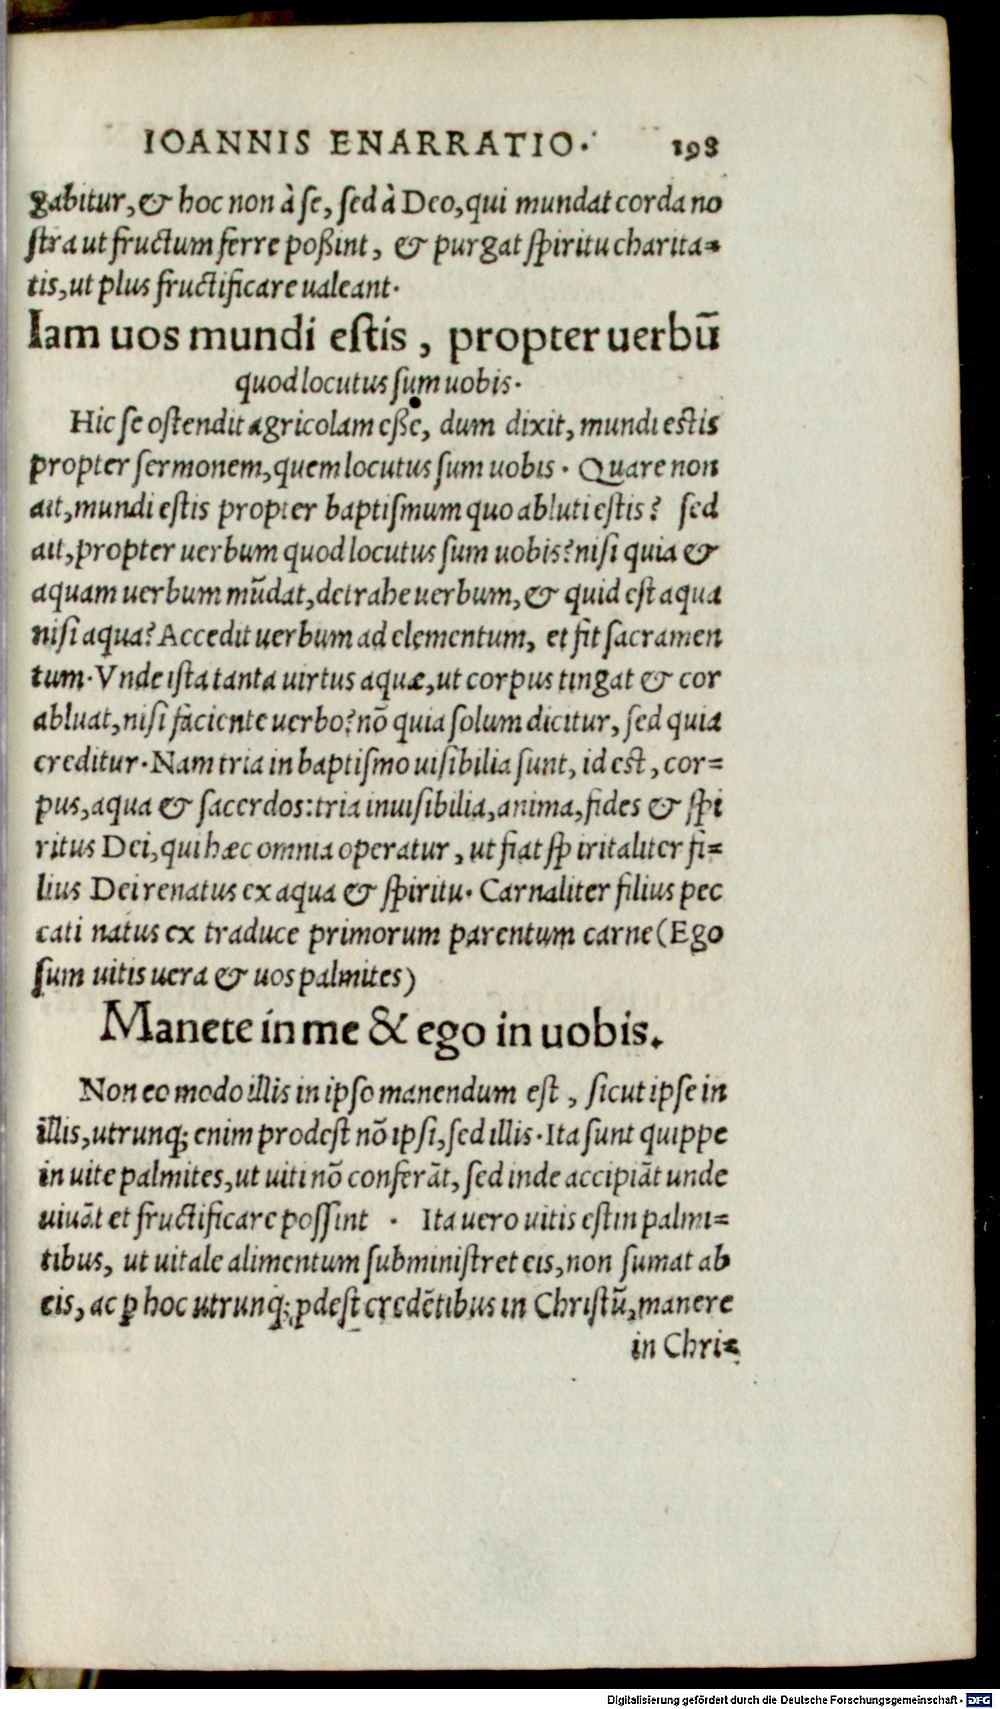 IOANNIS ENARRATIO. 198
gabitur, & hoc non à se, sed à Deo, qui mundat corda no
stra ut fructum ferre poßint, & purgat spiritu charita=
tis, ut plus fructificare ualeant.
Iam uos mundi estis, propter uerbū
quod locutus sum uobis.
Hic se ostendit agricolam eße, dum dixit, mundi estis
propter sermonem, quem locutus sum uobis. Quare non
ait, mundi estis propter baptismum quo abluti estis? sed
ait, propter uerbum quod locutus sum uobis? nisi quia &
aquam uerbum mūdat, detrahe uerbum, & quid est aqua
nisi aqua? Accedit uerbum ad elementum, et fit sacramen
tum. Vnde ista tanta uirtus aquæ, ut corpus tingat & cor
abluat, nisi faciente uerbo? nō quia solum dicitur, sed quia
creditur. Nam tria in baptismo uisibilia sunt, id est, cor=
pus, aqua & sacerdos: tria inuisibilia, anima, fides & spi
ritus Dei, qui hæc omnia operatur, ut fiat spiritaliter fi=
lius Dei renatus ex aqua & spiritu. Carnaliter filius pec
cati natus ex traduce primorum parentum carne (Ego
sum uitis uera & uos palmites)
Manete in me & ego in uobis.
Non eo modo illis in ipso manendum est, sicut ipse in
illis, utrunq; enim prodest nō ipsi, sed illis. Ita sunt quippe
in uite palmites, ut uiti nō conferāt, sed inde accipiāt unde
uiuāt et fructificare possint. Ita uero uitis est in palmi=
tibus, ut uitale alimentum subministret eis, non sumat ab
eis, ac ꝑ hoc utrunq; ꝓdest credētibus in Christū, manere
in Chri=
Digitalisierung gefördert durch die Deutsche Forschungsgemeinschaft - DFG